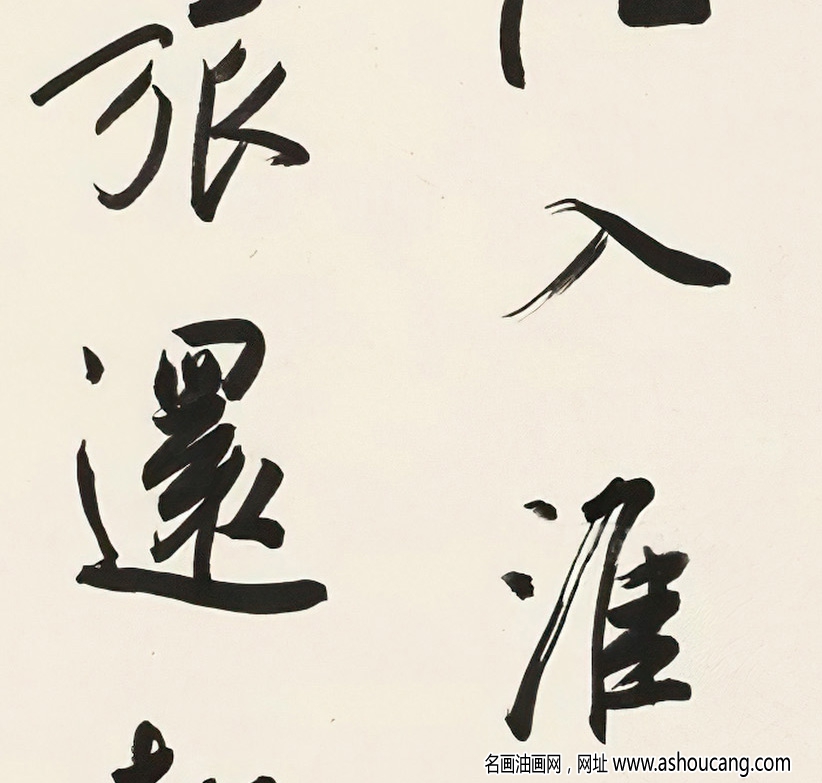 入淮
張還
名画油画网，网址 www.ashoucang.com